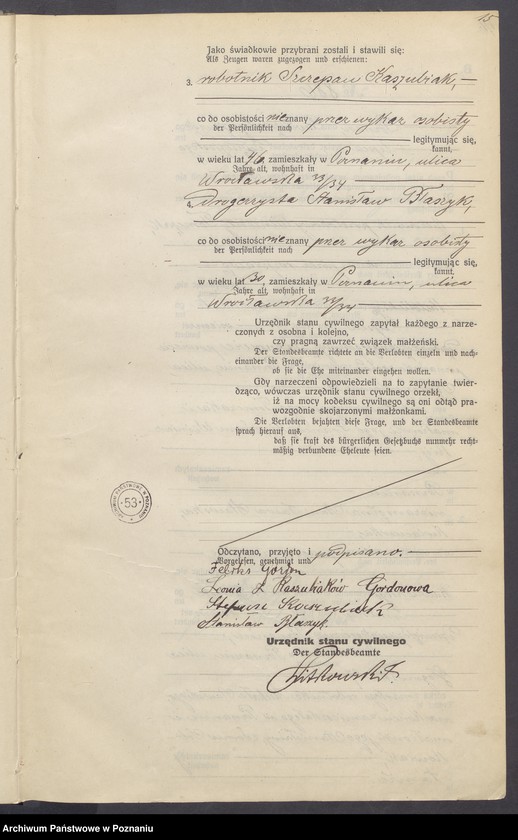 15
Jako świadkowie przybrani zostali i stawili się:
Als Zeugen waren zugezogen und erschienen:
3. robotnik Szczepan Kaszubiak, —
co do osobistości nieznany przez wykaz osobisty
der Persönlichkeit nach
legitymując się,
kannt,
w wieku lat 46, zamieszkały w Poznaniu, ulica
Jahre alt, wohnhaft in
Wrocławska 33/34
4. Drogerzysta Stanisław Błaszyk,
co do osobistości nieznany przez wykaz osobisty
der Persönlichkeit nach
legitymując się,
kannt.
w wieku lat 30, zamieszkały w Poznaniu, ulica
Jahre alt, wohnhaft in
Wrocławska 33/34
Urzędnik stanu cywilnego zapytał każdego z narze-
czonych z osobna i kolejno,
czy pragną zawrzeć związek małżeński.
Der Standesbeamte richtete an die Verlobten einzeln und nach-
einander die Frage,
ob sie die Ehe miteinander eingehen wollen.
Gdy narzeczeni odpowiedzieli na to zapytanie twier-
dząco, wówczas urzędnik stanu cywilnego orzekł,
iż na mocy kodeksu cywilnego są oni odtąd pra-
wozgodnie skojarzonymi małżonkami.
Die Verlobten bejahten diese Frage, und der Standesbeamte
sprach hierauf aus,
daß sie kraft des bürgerlichen Gesetzbuchs nunmehr recht-
mäßig verbundene Eheleute seien.
ARCHIWUM PAŃSTWOWE W POZNANIU
53
Odczytano, przyjęto i podpisano. —
Vorgelesen, genehmigt und
Feliks Gordon
Leonia z Kaszubiaków Gordonowa
Szczepan Kaszubiak
Stanisław Błaszyk.
Urzędnik stanu cywilnego
Der Standesbeamte
Witkowski
Archiwum Państwowe w Poznaniu